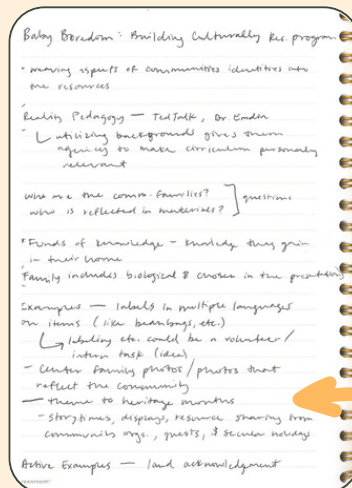 Baby Boredom: Building Culturally Res. program
* weaving aspects of communities identities into
the resources
Reality Pedagogy — TedTalk, Dr. Emdin
utilizing backgrounds gives them
agencies to make cirriculum personally
relevant
who are the comm. families?
who is reflected in materials?
questions
*Funds of knowledge - knowledge they gain
in their home
Family includes biological & chosen in the presentation
Examples — labels in multiple languages
on items (like beanbags, etc.)
labeling etc. could be a volunteer/
intern task (idea)
- Center family photos/photos that
reflect the community
— theme to heritage months
- storytimes, displays, resource sharing from
community orgs., guests, & secular holidays
Active Examples — land acknowledgment